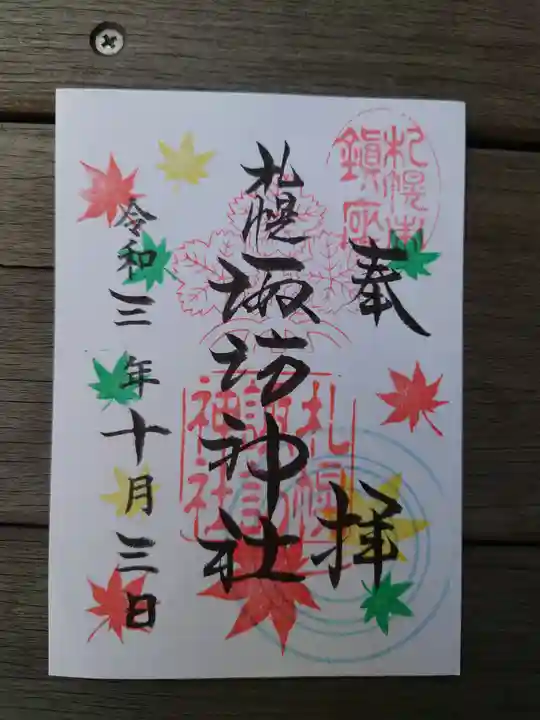 奉拝
札幌諏訪神社
令和三年十月三日
札幌市
鎮座
札幌
諏訪
神社